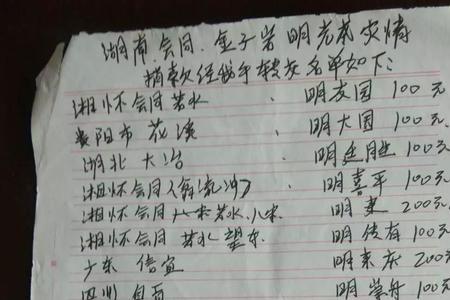 湖南会同、金子岩明光茂灾情
捐款经我手转交名单如下：
湘怀会同若水、明友国 100元
襄阳市花溪 明大国 100元
湖北大冶 明廷胜 100元
湘怀会同 明喜平 100元
湘怀会同 若水 明来 200元
湘怀会同 若水望东 明传有 100元
广东信宜 明来庆 200元
四川自贡 明崇舟 100元